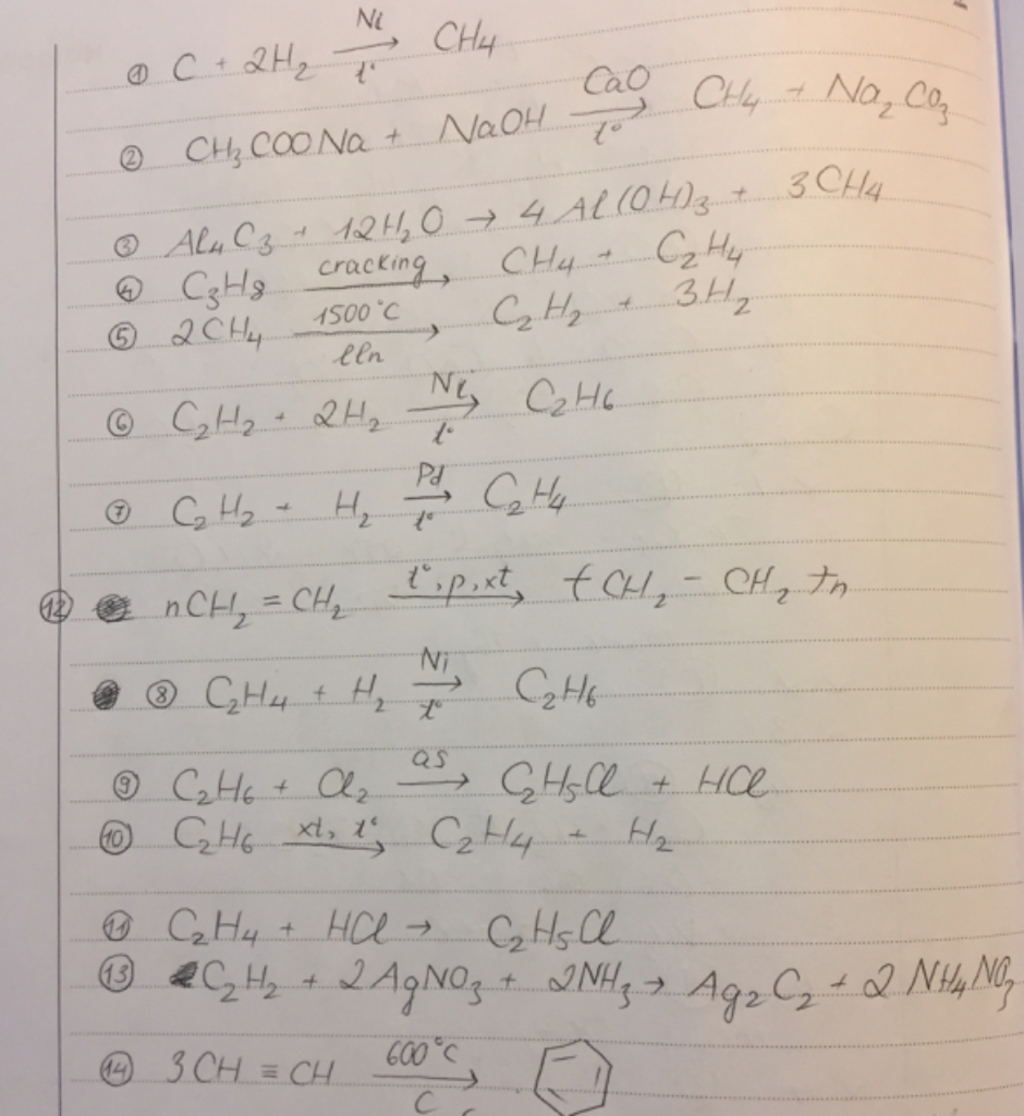 ① C + 2H₂ —Ni, t°→ CH₄
② CH₃COONa + NaOH —CaO, t°→ CH₄ + Na₂CO₃
③ Al₄C₃ + 12H₂O → 4Al(OH)₃ + 3CH₄
④ C₃H₈ —cracking→ CH₄ + C₂H₄
⑤ 2CH₄ —1500°C, lln→ C₂H₂ + 3H₂
⑥ C₂H₂ + 2H₂ —Ni, t°→ C₂H₆
⑦ C₂H₂ + H₂ —Pd, t°→ C₂H₄
⑫ nCH₂ = CH₂ —t°, p, xt→ (CH₂ – CH₂)n
⑧ C₂H₄ + H₂ —Ni, t°→ C₂H₆
⑨ C₂H₆ + Cl₂ —as→ C₂H₅Cl + HCl
⑩ C₂H₆ —xt, t°→ C₂H₄ + H₂
⑪ C₂H₄ + HCl → C₂H₅Cl
⑬ C₂H₂ + 2AgNO₃ + 2NH₃ → Ag₂C₂ + 2NH₄NO₃
⑭ 3CH ≡ CH —600°C, C→